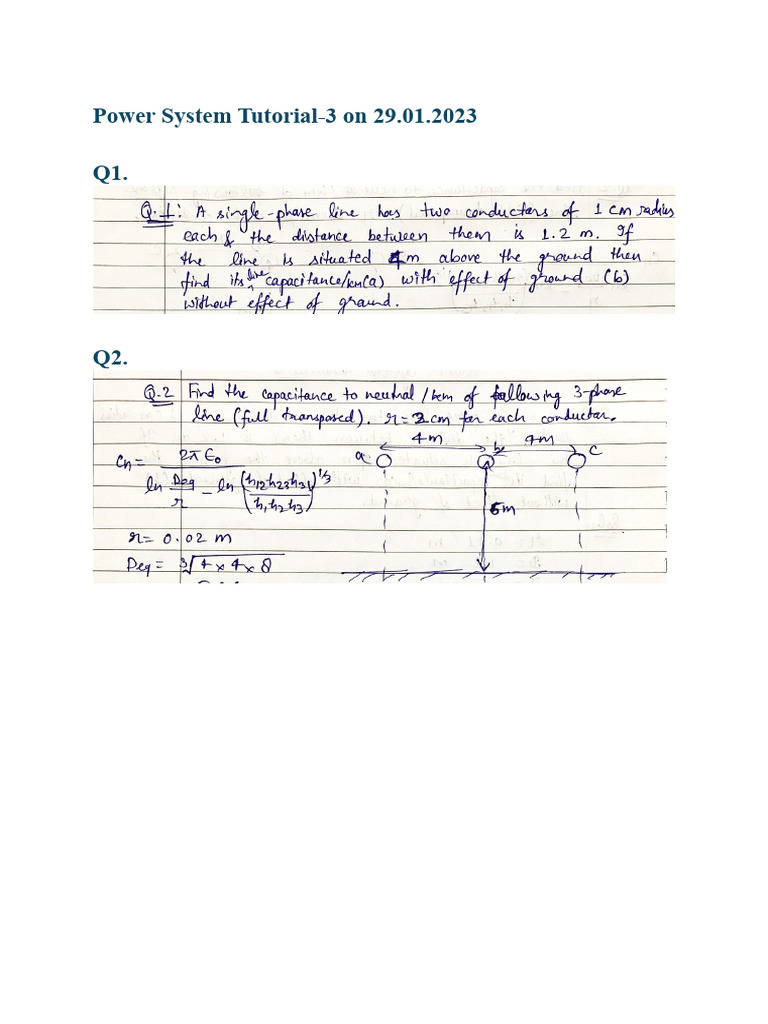 Power System Tutorial-3 on 29.01.2023
Q1.
Q.1: A single-phase line has two conductors of 1 cm radius
each & the distance between them is 1.2 m. If
the line is situated 4m above the ground then
find its line capacitance/km (a) with effect of ground (b)
without effect of ground.
Q2.
Q.2 Find the capacitance to neutral /km of following 3-phase
line (full transposed). r = 2 cm for each conductor.
4m 4m
a b c
Cn = 2π ε₀
ln Deq/r - ln (h12 h23 h31 / h1 h2 h3)^1/3
6m
r = 0.02 m
Deq = ∛4 x 4 x 8